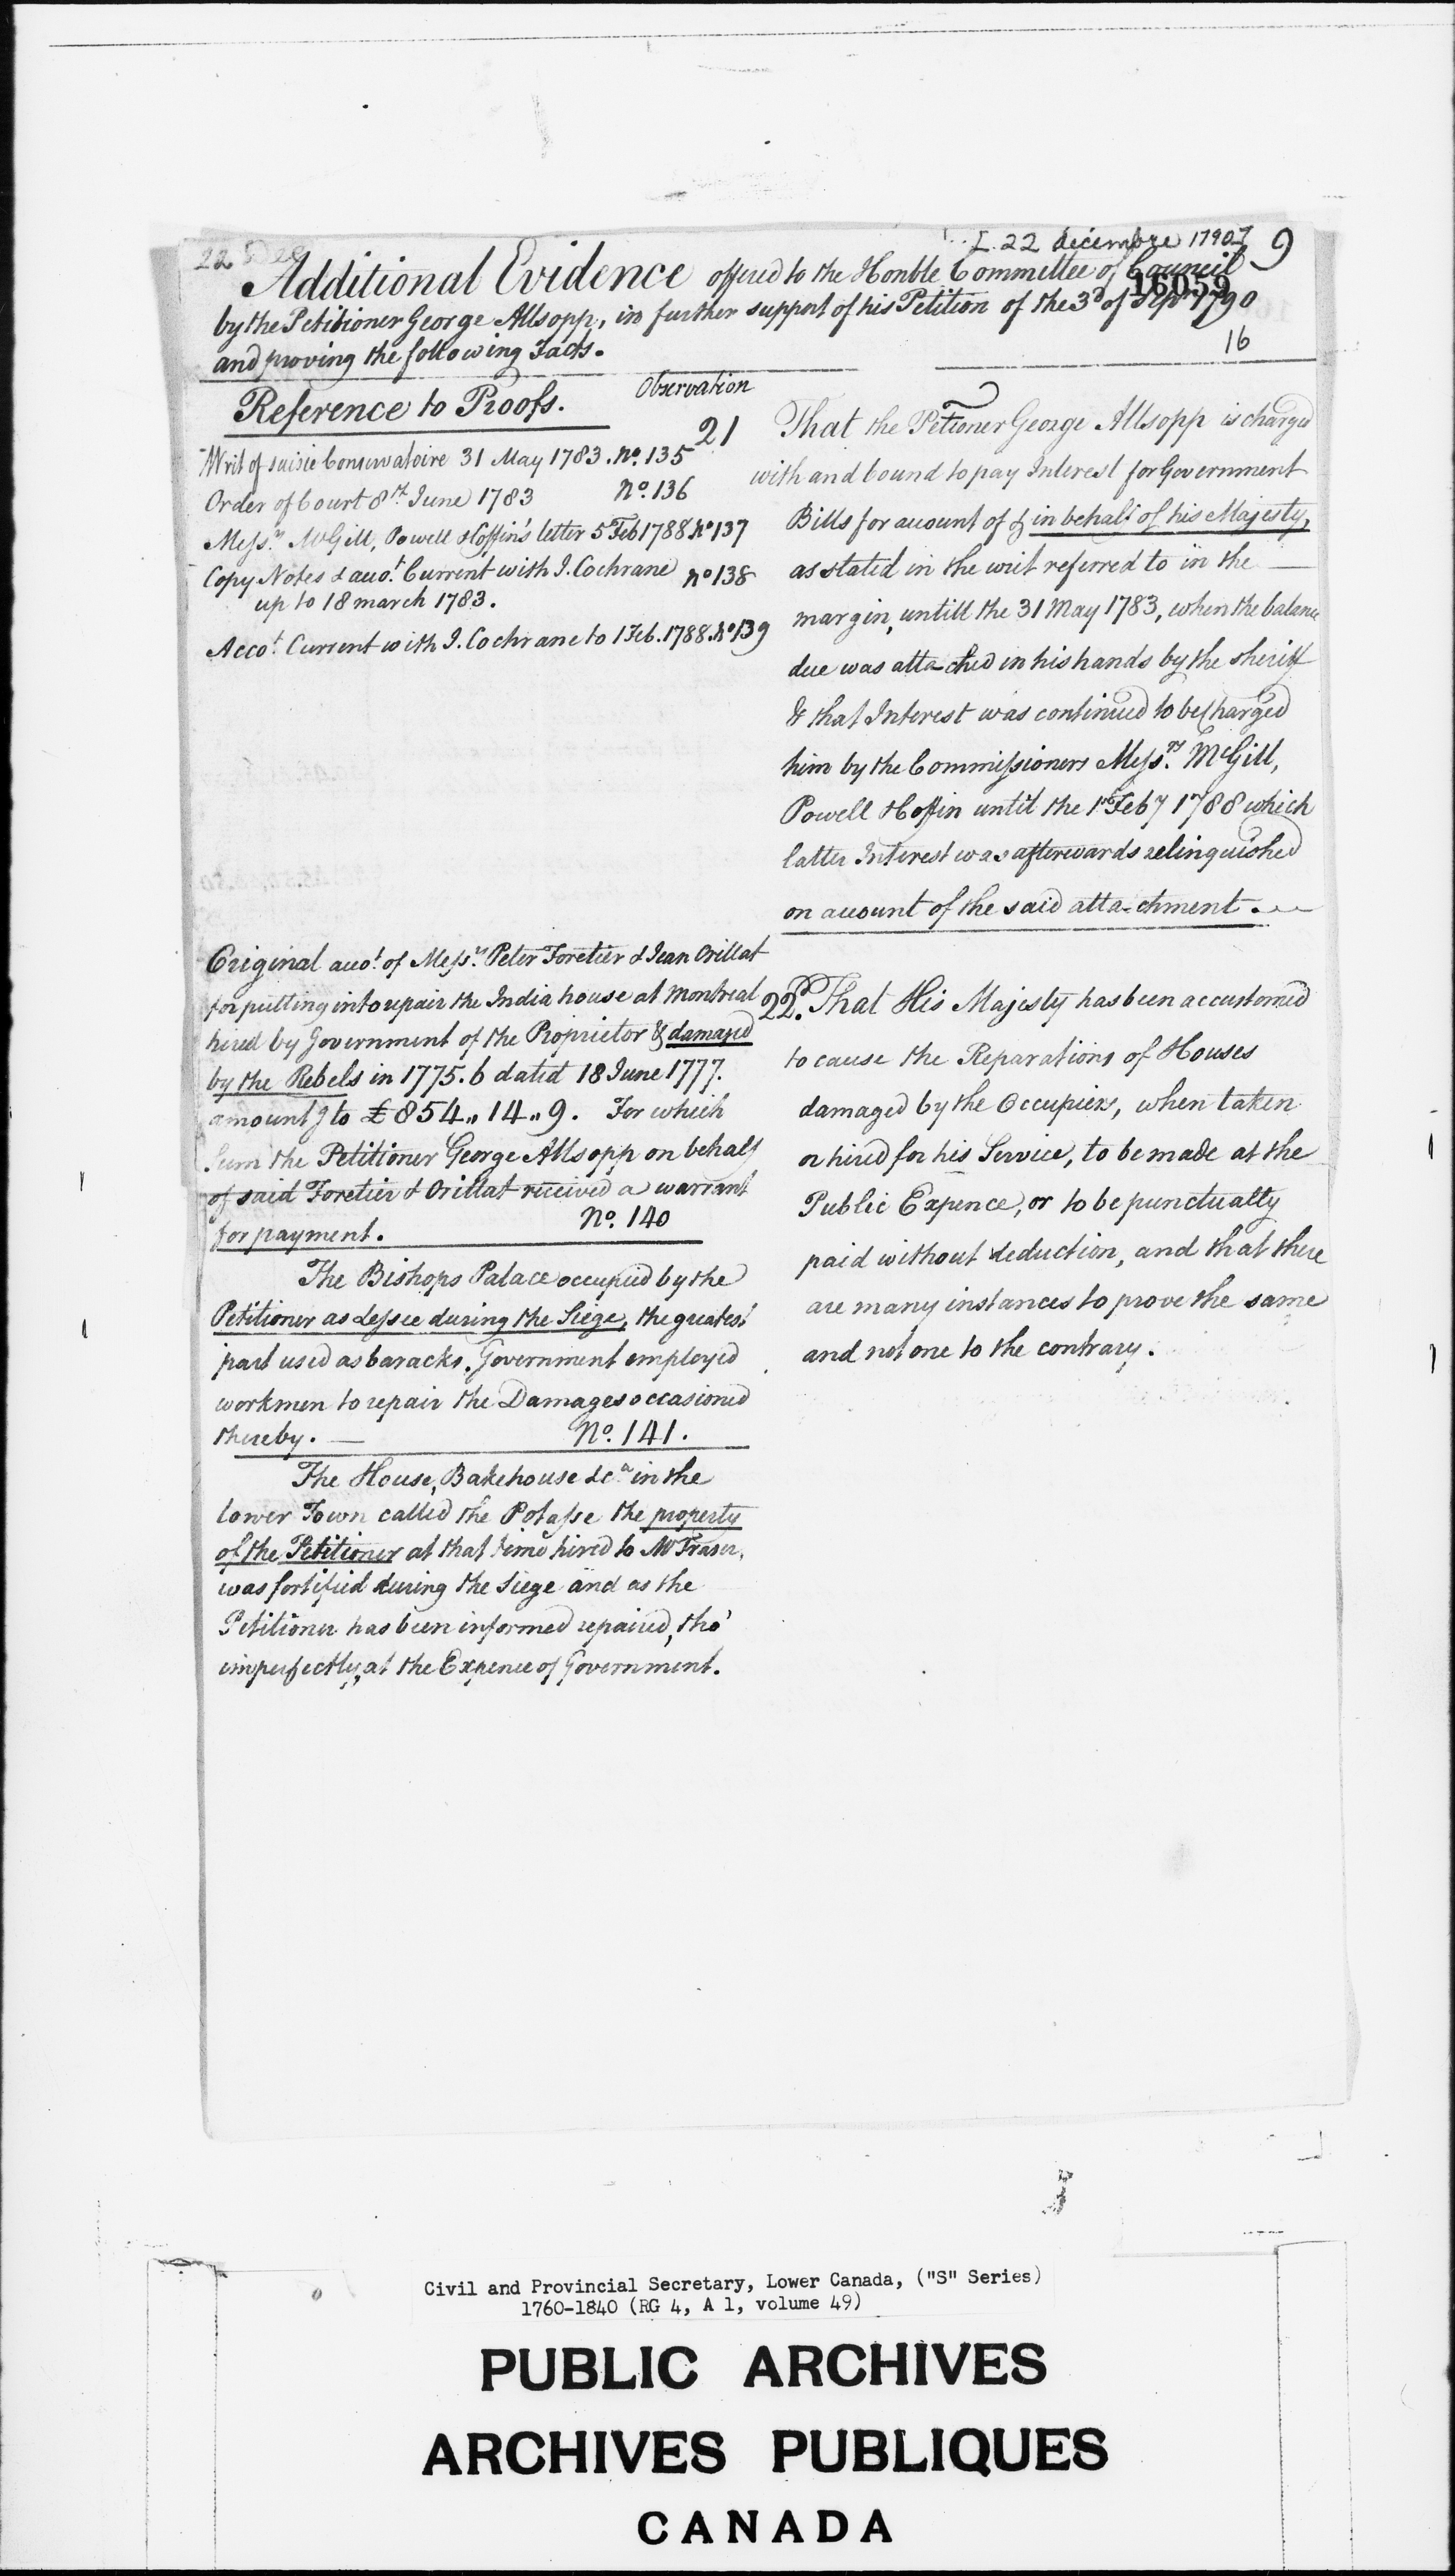 [22 décembre 1790] 9
22
Additional Evidence offered to the Honble Committee of Council
16059
by the Petitioner George Allsopp, in further support of his Petition of the 3d of Sepr 1790
and proving the following Facts.
16
Reference to Proofs.
Observation
Writ of saisie Conservatoire 31 May 1783. No. 135
Order of Court 8th June 1783 No. 136
Messrs McGill, Powell & Coffin's letter 5 Feb 1788 No 137
Copy Notes & accot. Current with J. Cochrane No 138
up to 18 march 1783.
Accot. Current with J. Cochrane to 1 Feb. 1788. No 139
21
That the Petioner George Allsopp is charged
with and bound to pay Interest for Government
Bills for account of & in behalf of his Majesty,
as stated in the writ referred to in the
margin, untill the 31 May 1783, when the balance
due was atta-ched in his hands by the sheriff
& that Interest was continued to be Charged
him by the Commissioners Messrs. McGill,
Powell & Coffin until the 1st Feby 1788 which
latter Interest was afterwards relinquished
on account of the said atta-chment.
Original accot. of Messrs. Peter Foretier & Jean Orillat
for putting into repair the India house at Montreal
hired by Government of the Proprietor & damaged
by the Rebels in 1775.6 dated 18 June 1777.
amountg to £854,,14,,9. For which
Sum the Petitioner George Allsopp on behalf
of said Foretier & Orillat received a warrant
for payment. No. 140
The Bishops Palace occupied by the
Petitioner as Lessee during the Siege, the greatest
part used as baracks. Government employed
workmen to repair the Damages occasioned
thereby. No. 141.
The House, Bakehouse &ca in the
lower Town called the Potasse the property
of the Petitioner at that time hired to Mr Fraser,
was fortified during the Siege and as the
Petitioner has been informed repaired, tho'
imperfectly, at the Expence of Government.
22d. That His Majesty has been accustomed
to cause the Reparations of Houses
damaged by the Occupiers, when taken
or hired for his Service, to be made at the
Public Expence, or to be punctually
paid without deduction, and that there
are many instances to prove the same
and not one to the contrary.
Civil and Provincial Secretary, Lower Canada, ("S" Series)
1760-1840 (RG 4, A 1, volume 49)
PUBLIC ARCHIVES
ARCHIVES PUBLIQUES
CANADA